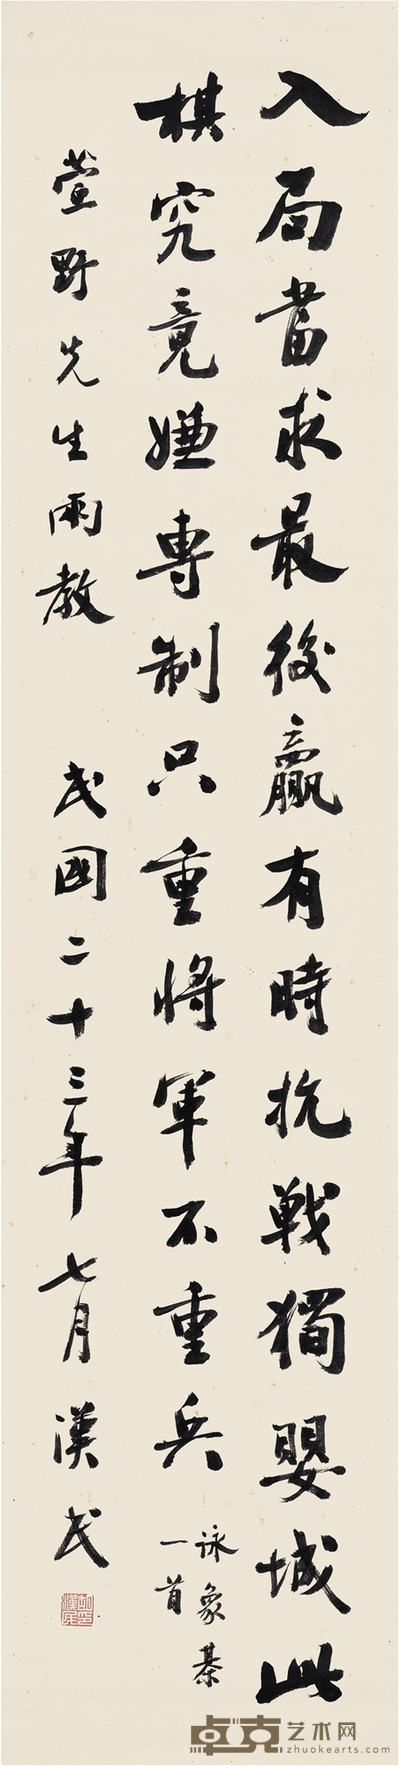 入局當求最後贏有時抗戰獨嬰城此
棋究竟嫌專制只重將軍不重兵
詠象棊
一首
萱野先生兩教
民國二十三年七月漢民
卓克艺术网
zhuokearts.com